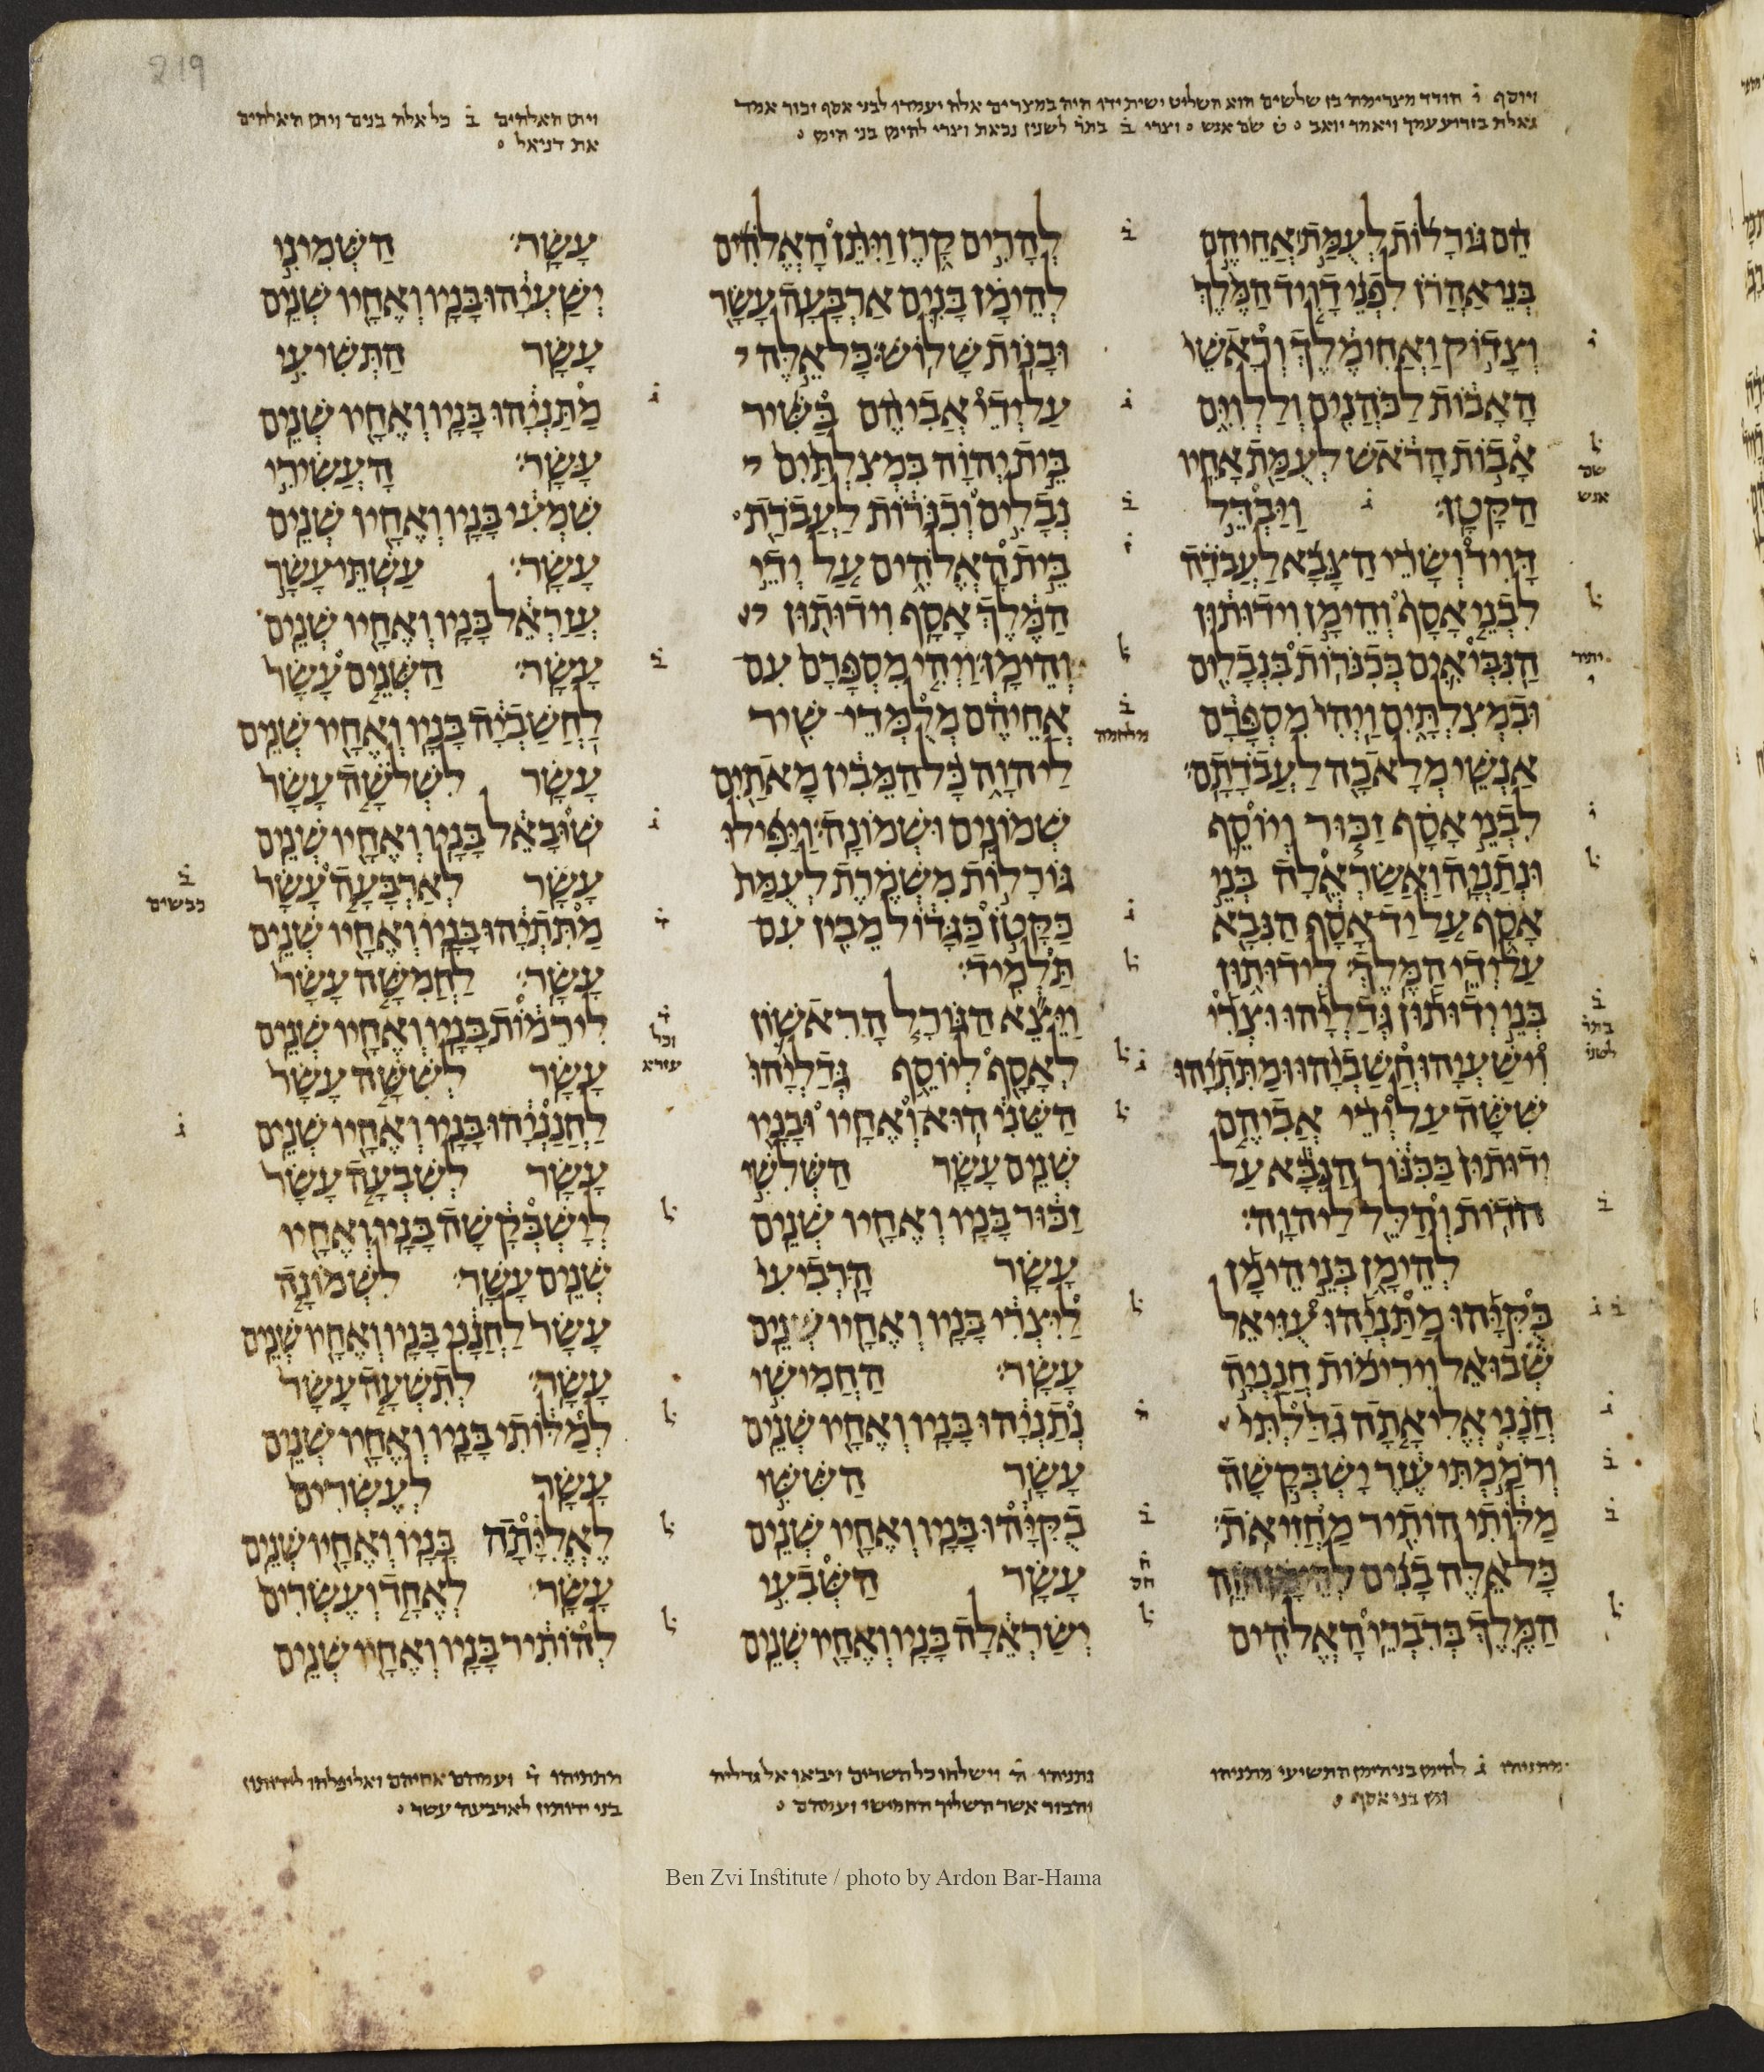 219
ויוסף ו̇ הודד מצרימה בן שלשים הוא השליט ישית ידו היה במצרים אלה יעמדו לבני אסף זכור אמר
גאלת בזרוע עמך ויאמר יואב ׃ ש̇ שם אנש ׃ וצרי ב̇ בתר̇ לשנין נכאת וצרי להימן בני הימן ׃
ויתן האלהים ב̇ כל אלה בנים ויתן האלהים
את דניאל ׃
הם גורלות לעמת אחיהם
בני אהרן לפני דויד המלך
וצדוק ואחימלך וראשי
האבות לכהנים וללוים
אבות הראש לעמת אחיו
הקטן׃ ויבדל
דויד ושרי הצבא לעבדה
לבני אסף והימן וידותון
הנביאים בכנרות בנבלים
ובמצלתים ויהי מספרם
אנשי מלאכה לעבדתם׃
לבני אסף זכור ויוסף
ונתניה ואשראלה בני
אסף על יד אסף הנבא
על ידי המלך׃ לידותון
בני ידותון גדליהו וצרי
וישעיהו חשביהו ומתתיהו
ששה על ידי אביהם
ידותון בכנור הנבא על
הדות והלל ליהוה׃
להימן בני הימן
בקיהו מתניהו עזיאל
שבואל וירימות חנניה
חנני אליאתה גדלתי
ורממתי עזר ישבקשה
מלותי הותיר מחזיאת׃
כל אלה בנים להימן חזה
המלך בדברי האלהים
להרים קרן ויתן האלהים
להימן בנים ארבעה עשר
ובנות שלוש׃ כל אלה
על ידי אביהם בשיר
בית יהוה במצלתים
נבלים וכנרות לעבדת
בית האלהים על ידי
המלך אסף וידותון
והימן׃ ויהי מספרם עם
אחיהם מלמדי שיר
ליהוה כל המבין מאתים
שמונים ושמונה׃ ויפילו
גורלות משמרת לעמת
כקטן כגדול מבין עם
תלמיד׃
ויצא הגורל הראשון
לאסף ליוסף גדליהו
השני הוא ואחיו ובניו
שנים עשר השלשי
זכור בניו ואחיו שנים
עשר הרביעי
ליצרי בניו ואחיו שנים
עשר׃ החמישי
נתניהו בניו ואחיו שנים
עשר הששי
בקיהו בניו ואחיו שנים
עשר השבעי
ישראלה בניו ואחיו שנים
עשר׃ השמיני
ישעיהו בניו ואחיו שנים
עשר התשיעי
מתניהו בניו ואחיו שנים
עשר׃ העשירי
שמעי בניו ואחיו שנים
עשר׃ עשתי עשר
עזראל בניו ואחיו שנים
עשר׃ השנים עשר
לחשביה בניו ואחיו שנים
עשר לשלשה עשר
שובאל בניו ואחיו שנים
עשר לארבעה עשר
מתתיהו בניו ואחיו שנים
עשר׃ לחמשה עשר
לירמות בניו ואחיו שנים
עשר לששה עשר
לחנניהו בניו ואחיו שנים
עשר לשבעה עשר
לישבקשה בניו ואחיו
שנים עשר׃ לשמונה
עשר לחנני בניו ואחיו שנים
עשר׃ לתשעה עשר
למלותי בניו ואחיו שנים
עשר לעשרים
לאליתה בניו ואחיו שנים
עשר׃ לאחד ועשרים
להותיר בניו ואחיו שנים
מתניהו ג̇ להימן בני הימן התשיעי מתניהו
ומן בני אסף ׃
נתניהו ה̇ וישלחו כל השרים ויבאו אל גדליה
והבור אשר השליך החמישי ועמהם ׃
מתתיהו ד̇ ועמהם אחיהם ואליפלהו לידותון
בני ידותון לארבעה עשר ׃
Ben Zvi Institute / photo by Ardon Bar-Hama